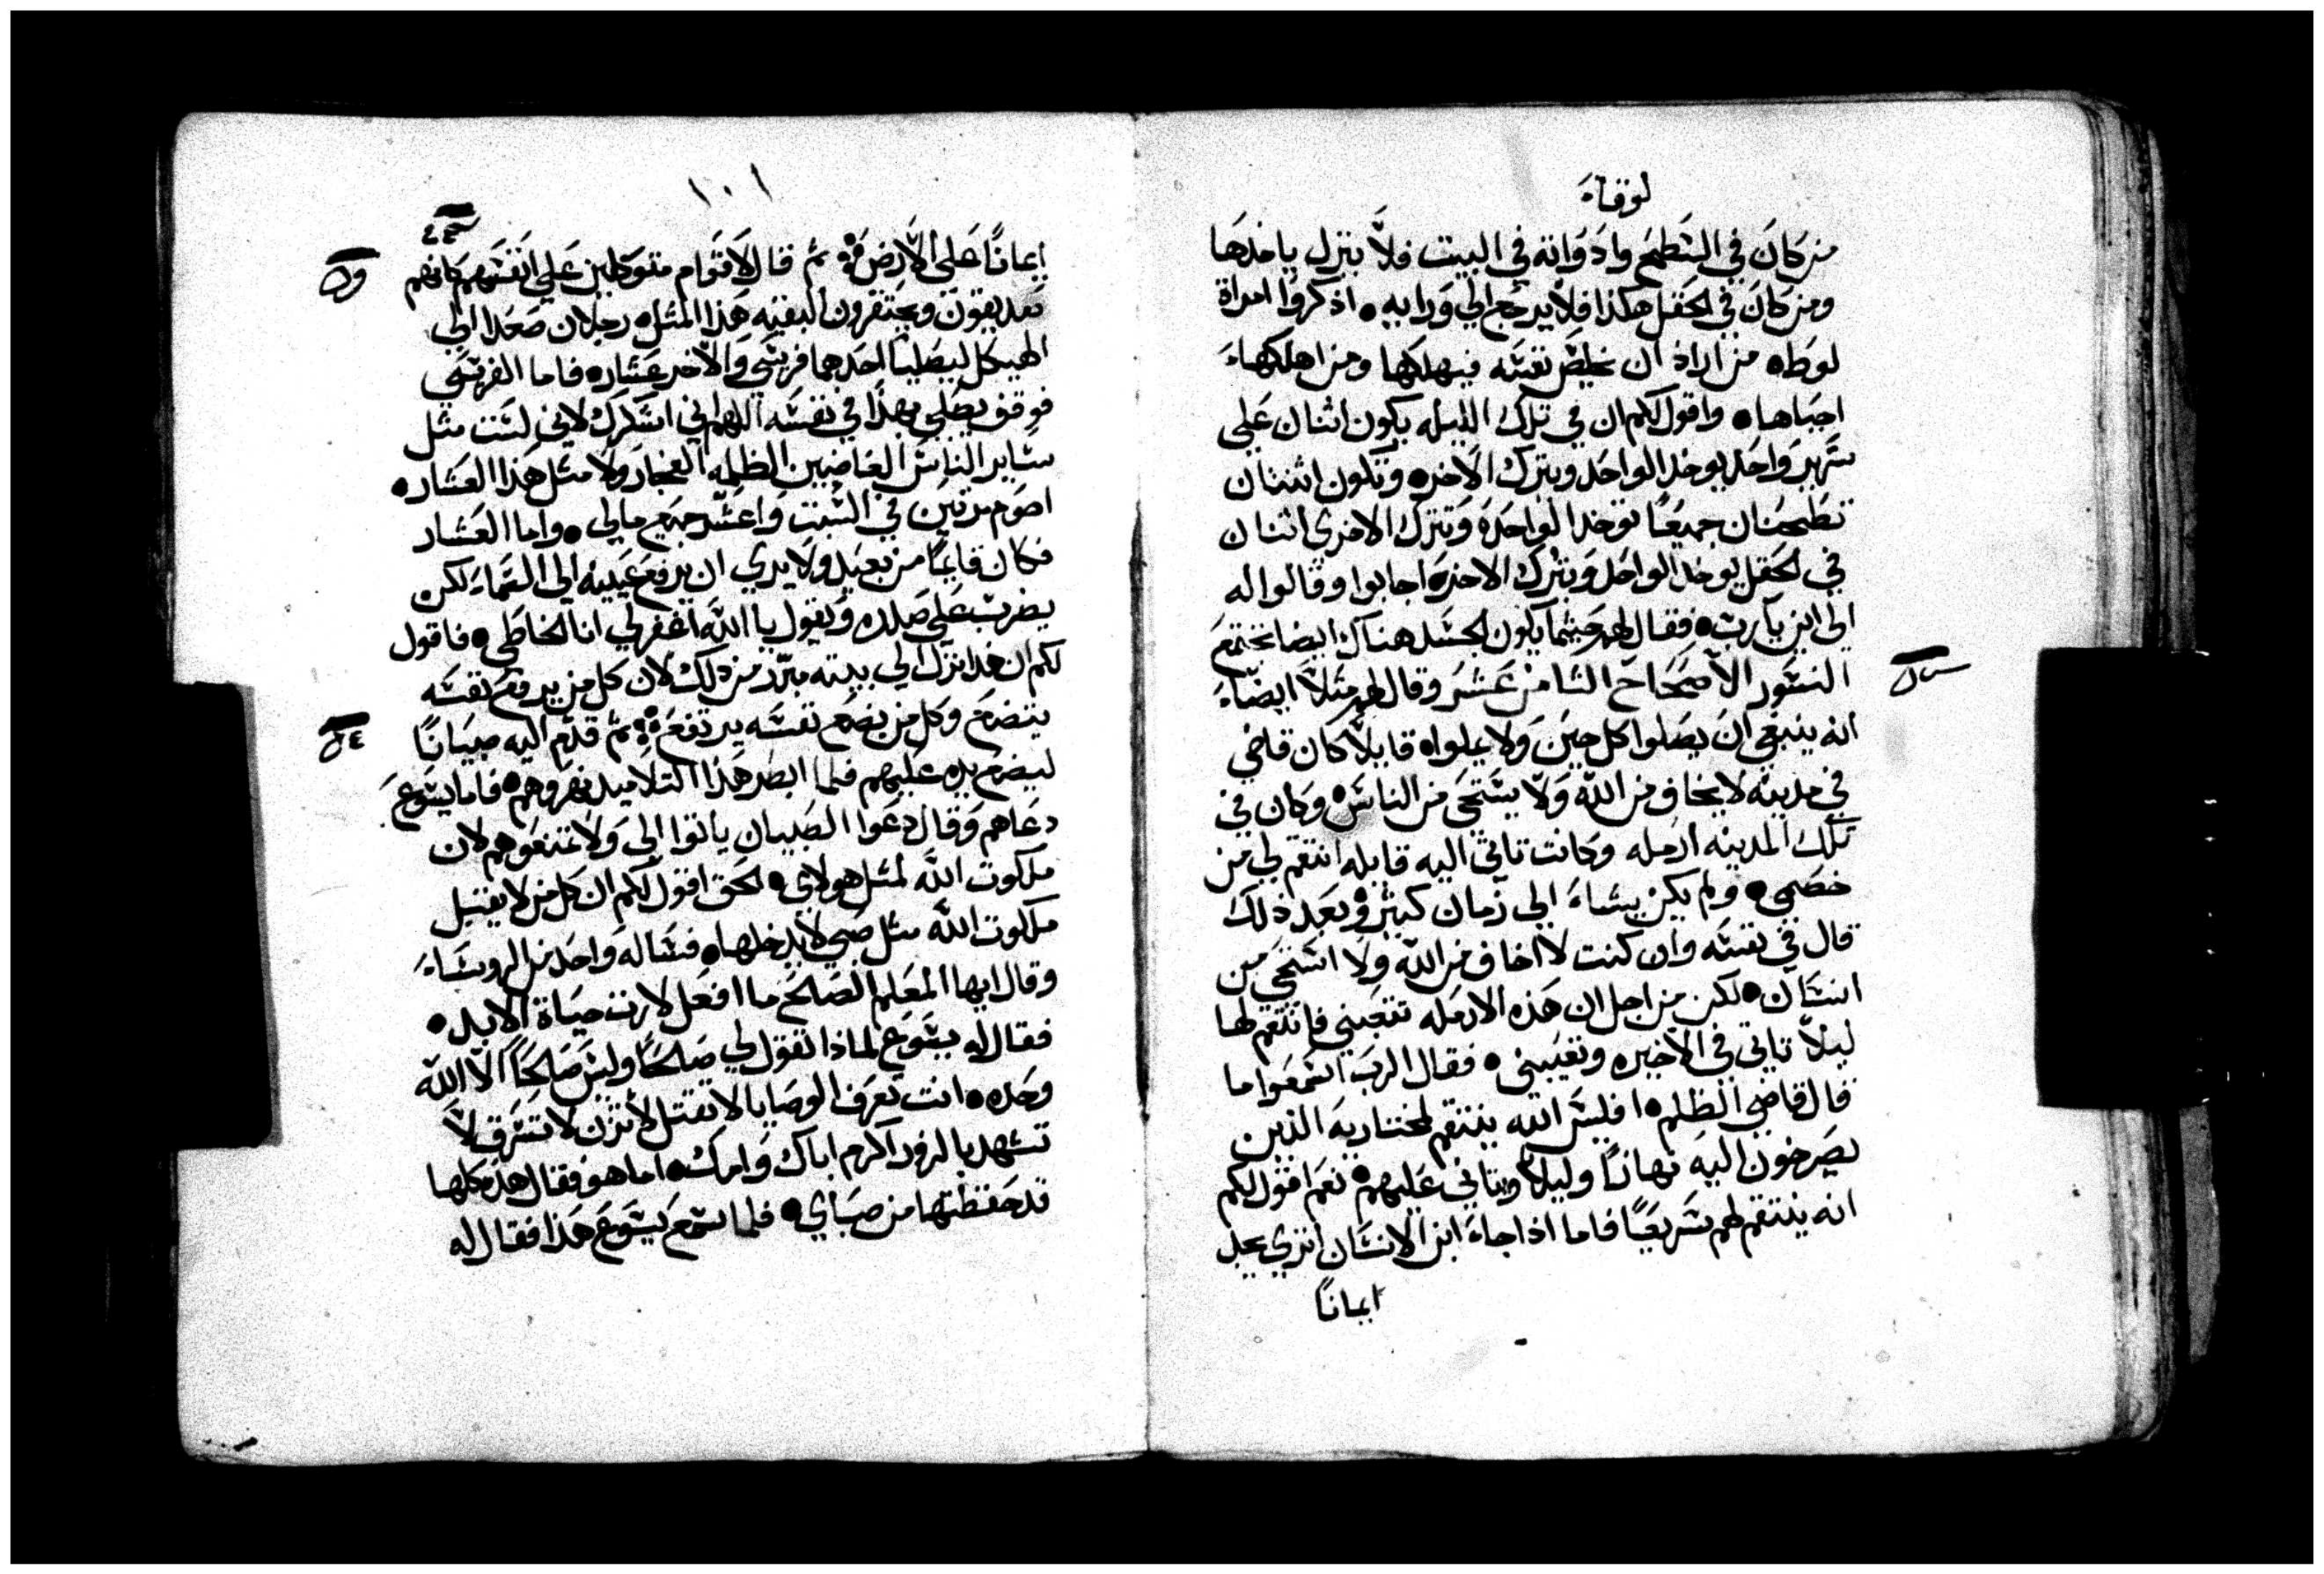 لوقاء
من كان في السطح وادواته في البيت فلا ينزل ياخدها
ومن كان في الحقل هكذا فلا يرجع الي ورايه ٠ اذكروا امراة
لوط ٠ من اراد ان يخلص نفسه فيهلكها ومن اهلكهاء
احياها ٠ واقول لكم ان في تلك الليله يكون اثنان علي
سرير واحد يوخد الواحد ويترك الاخر ٠ وتكون اثنتان
تطحنان جميعًا توخد الواحده وتترك الاخري اثنان
في الحقل يوخد الواحد ويترك الاخر ٠ اجابوا وقالوا له
الي اين يارب ٠ فقال لهم حيثما يكون الجسد هناك ايضا تجتمع
النسور الاصحاح الثامن عشر وقال لهم مثلاً ايضاء
انه ينبغي ان يصلوا كل حين ولا يملوا ٠ قايلاً كان قاضي
في مدينه لا يخاف من الله ولا يستحي من الناس ٠ وكان في
تلك المدينه ارمله وكانت تاتي اليه قايله انتقم لي من
خصمي ٠ ولم يكن يشاء الي زمان كثير وبعد ذلك
قال في نفسه وان كنت لا اخاف من الله ولا استحي من
انسان ٠ لكن من اجل ان هذه الارمله تتعبني فانتقم لها
ليلاً تاتي في الاخيره وتعيبني ٠ فقال الرب اسمعوا ما
قال قاضي الظلم ٠ افليس الله ينتقم لمختاريه الذين
يصرخون اليه نهارًا وليلاً ويتاني عليهم ٠ نعم اقول لكم
انه ينتقم لهم سريعًا فاما اذا جاء ابن الانسان اتري يجد
ايمانًا
١٠١
ايمانًا علي الارض ٠ ثم قال لاقوام متوكلين علي انفسهم كانهم
صديقون ويحتقرون البقيه هذا المثل ٠ رجلان صعدا الي
الهيكل ليصليا احدهما فريسي والاخر عشار ٠ فاما الفريسي
فوقف يصلي بهذا في نفسه اللهم اني اشكرك لاني لست مثل
ساير الناس الغاضبين الظلمه الفجار ولا مثل هذا العشار ٠
اصوم مرتين في السبت واعشر جميع مالي ٠ واما العشار
فكان قايمًا من بعيد ولا يري ان يرفع عينيه الي السماء لكن
يضرب علي صدره ويقول يا الله اغفر لي انا الخاطي ٠ فاقول
لكم ان هذا نزل الي بيته مبرر من ذلك لان كل من يرفع نفسه
يتضع وكل من يضع نفسه يرتفع ٠ ثم قدم اليه صبيانًا
ليضع يده عليهم فلما ابصر هذا التلاميد نهروهم ٠ فاما يسوع
دعاهم وقال دعوا الصبيان ياتوا الي ولا تمنعوهم لان
ملكوت الله لمثل هولاي ٠ الحق اقول لكم ان كل من لا يقبل
ملكوت الله مثل صبي لا يدخلها ٠ فساله واحد من الروساء
وقال ايها المعلم الصالح ما افعل لارث حياة الابد ٠
فقال له يسوع لماذا تقول لي صالحًا وليس صالحًا الا الله
وحده ٠ انت تعرف الوصايا لا تقتل لا تزن لا تسرق لا
تشهد بالزور اكرم اباك وامك ٠ اما هو فقال هذه كلها
قد حفظتها من صباي ٠ فلما سمع يسوع هذا فقال له